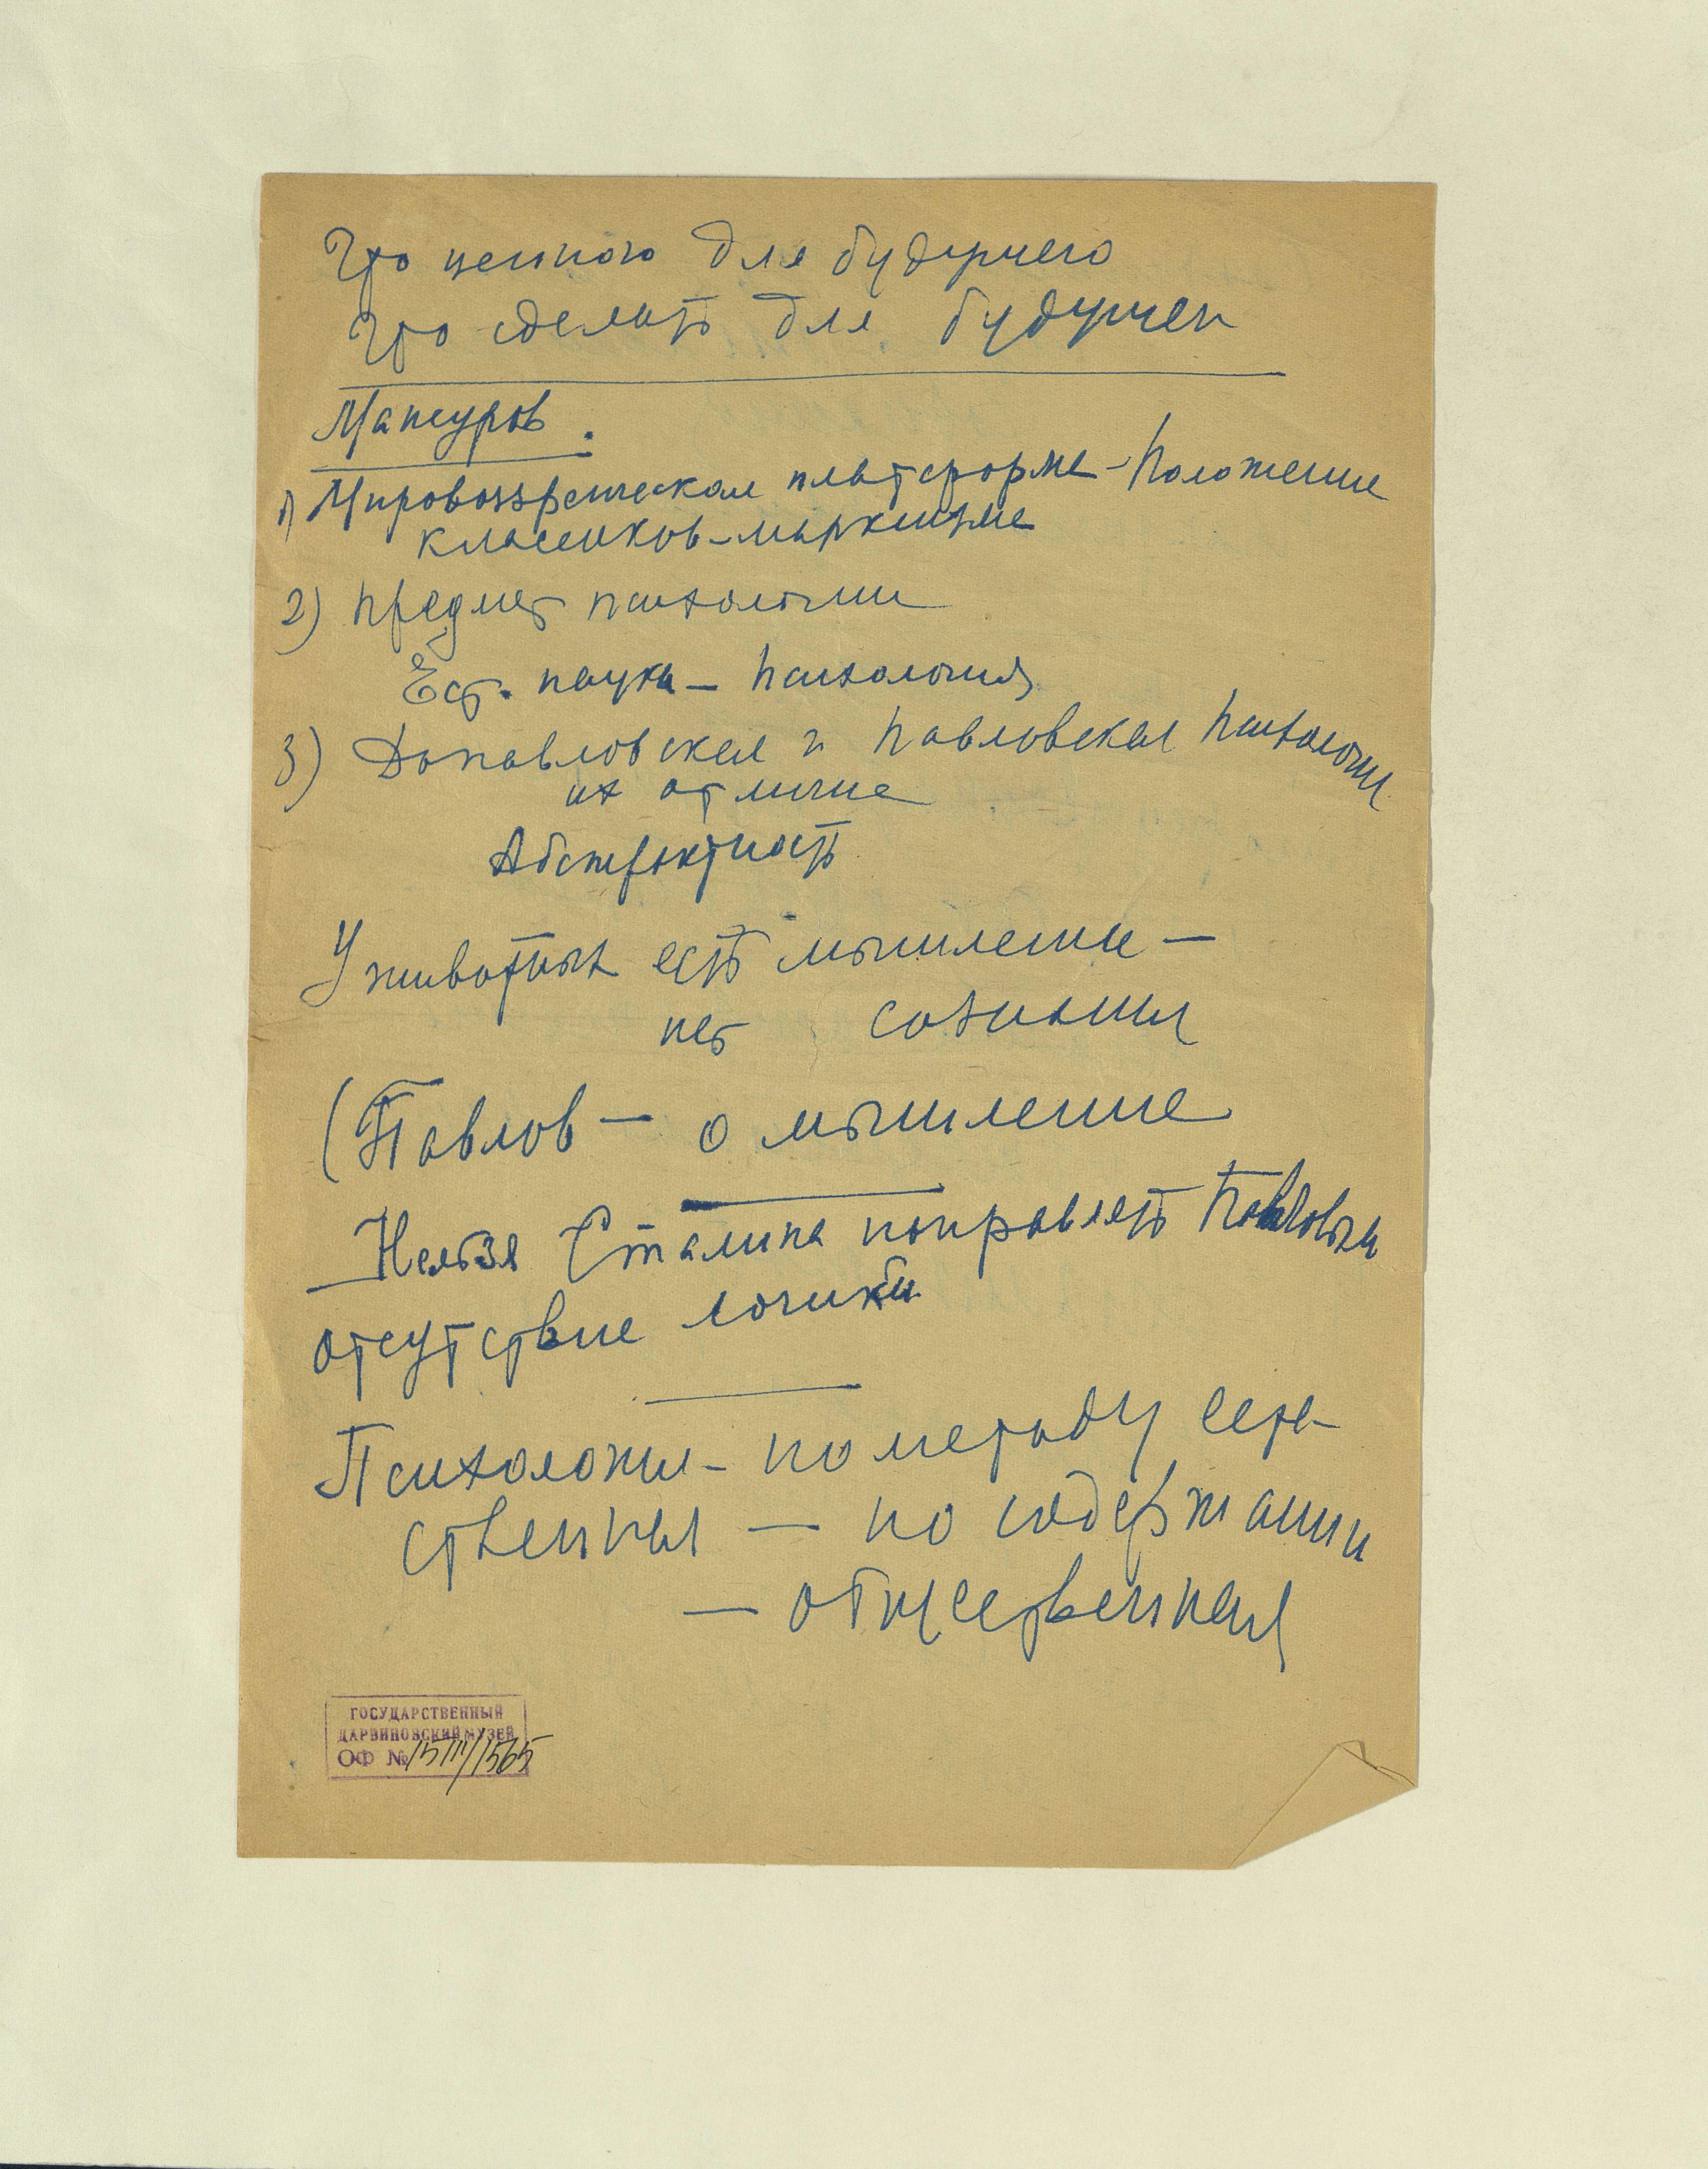 Что ценного для будущего
Что сделать для будущего
Мансуров.
1) Мировоззренческая платформа – Положение
классиков-марксизма
2) Предмет психологии
Ест. наука – психология
3) Допавловская и Павловская психологии
их отличие
Абстрактность
У животных есть мышление –
нет сознания
(Павлов – о мышление
Нельзя Сталина поправлять Павловым
отсутствие логики
Психология – по методу есте-
ственная – по содержании
– общественная
ГОСУДАРСТВЕННЫЙ
ДАРВИНОВСКИЙ МУЗЕЙ
ОФ № 15111/1565